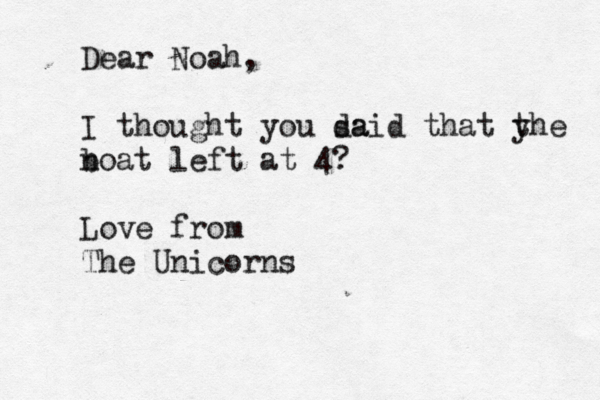 Dear Noah,
I thought you said that the
boat left at 4?
Love from
The Unicorns